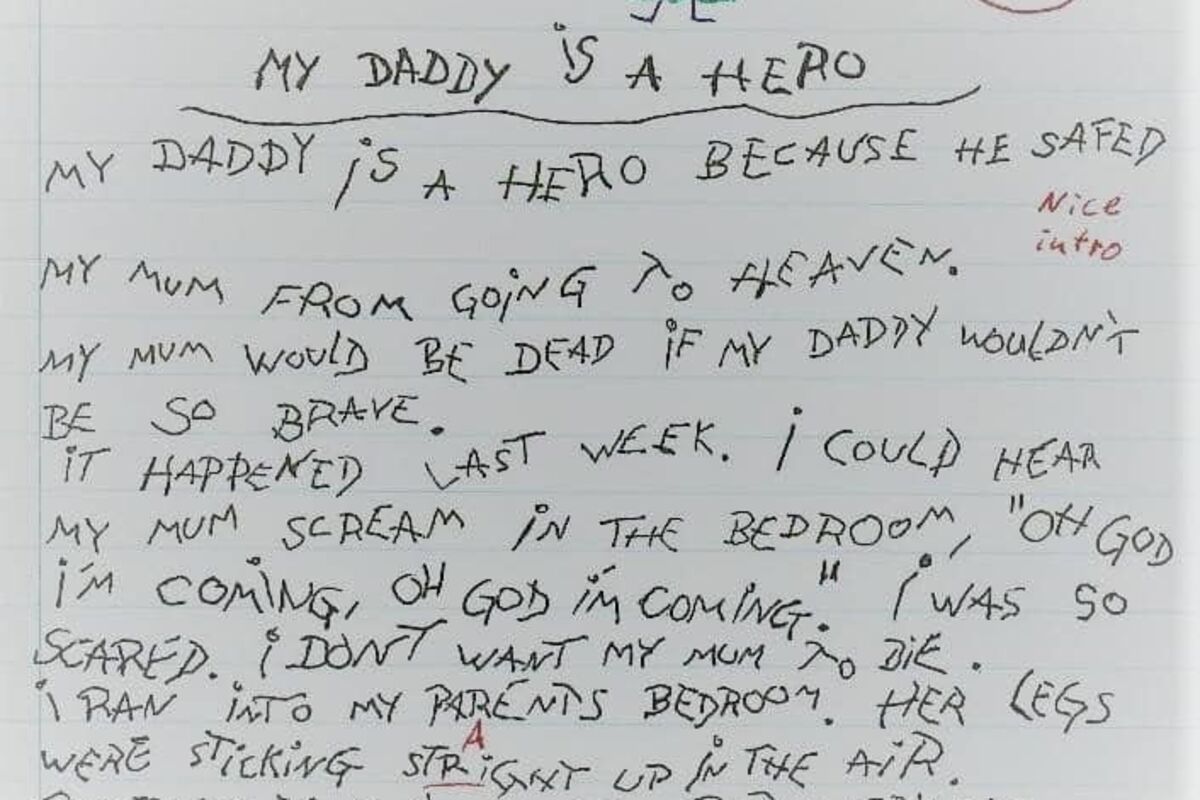 MY DADDY iS A HERO
MY DADDY iS A HERO BECAUSE HE SAFED
Nice
intro
MY MUM FROM GOiNG TO HEAVEN.
MY MUM WOULD BE DEAD iF MY DADDY WOULDN'T
BE SO BRAVE.
iT HAPPENED LAST WEEK. i COULD HEAR
MY MUM SCREAM iN THE BEDROOM, "OH GOD
i'M COMiNG, OH GOD i'M COMiNG." i WAS SO
SCARED. i DON'T WANT MY MUM TO DiE.
i RAN iNTO MY PARENTS BEDROOM. HER LEGS
A
WERE STiCKiNG STRiGHT UP iN THE AiR.